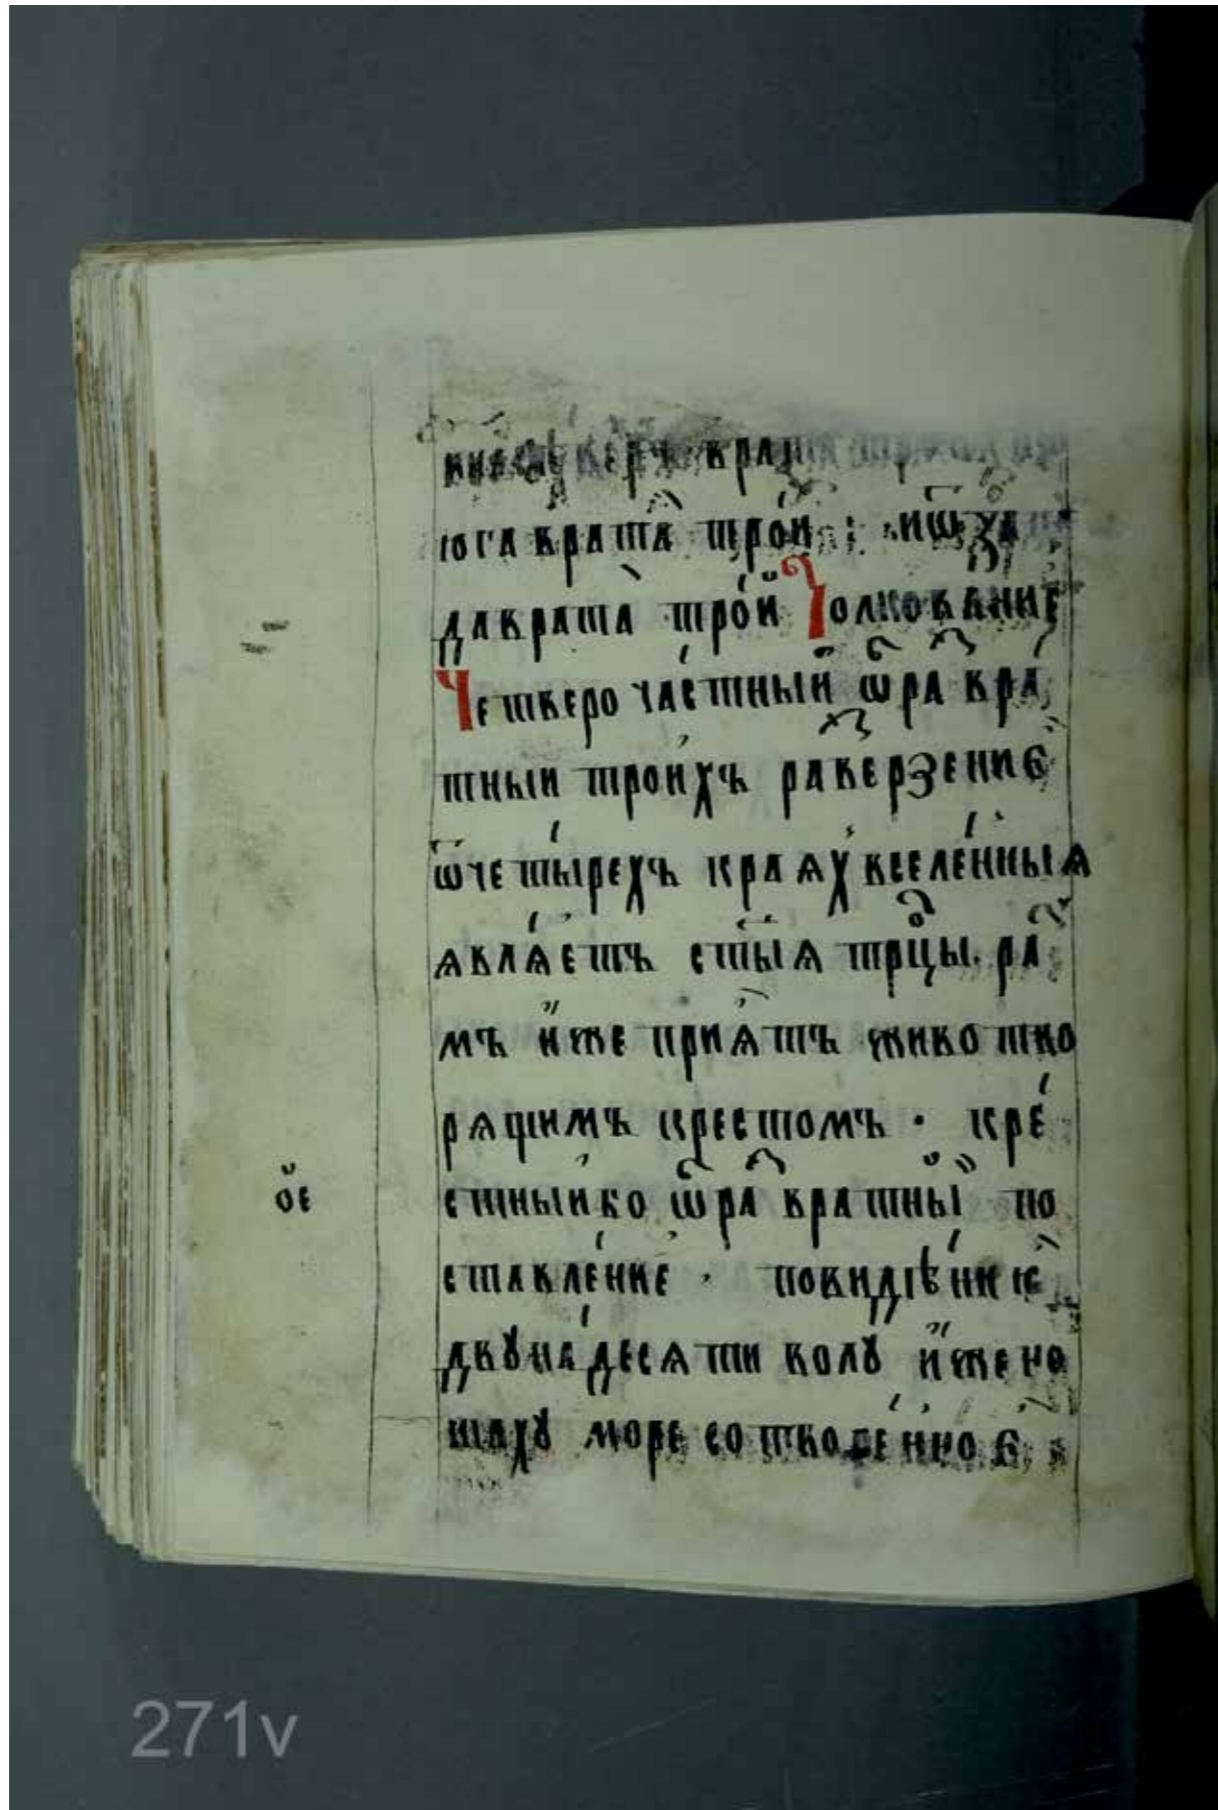 врата
юга врата̀ трои : и ѿ за
да врата̀ трои́ Толкова́ние
Четверочастныи ѿра вра́
тныи трои́хъ раверзение
ѿ четы́рехъ краѧх вселе́нныѧ
ѧвлѧ́етъ стыѧ трцы. ра
мъ и҆же приѧ́тъ животво
рѧщимъ крестомъ . кре́
стныи ко ѿра вратны пο
ставле́ние . по видѣ́нию
двꙋна́десѧти волꙋ и҆же но
шахꙋ море сотворе́нное
ое
271v